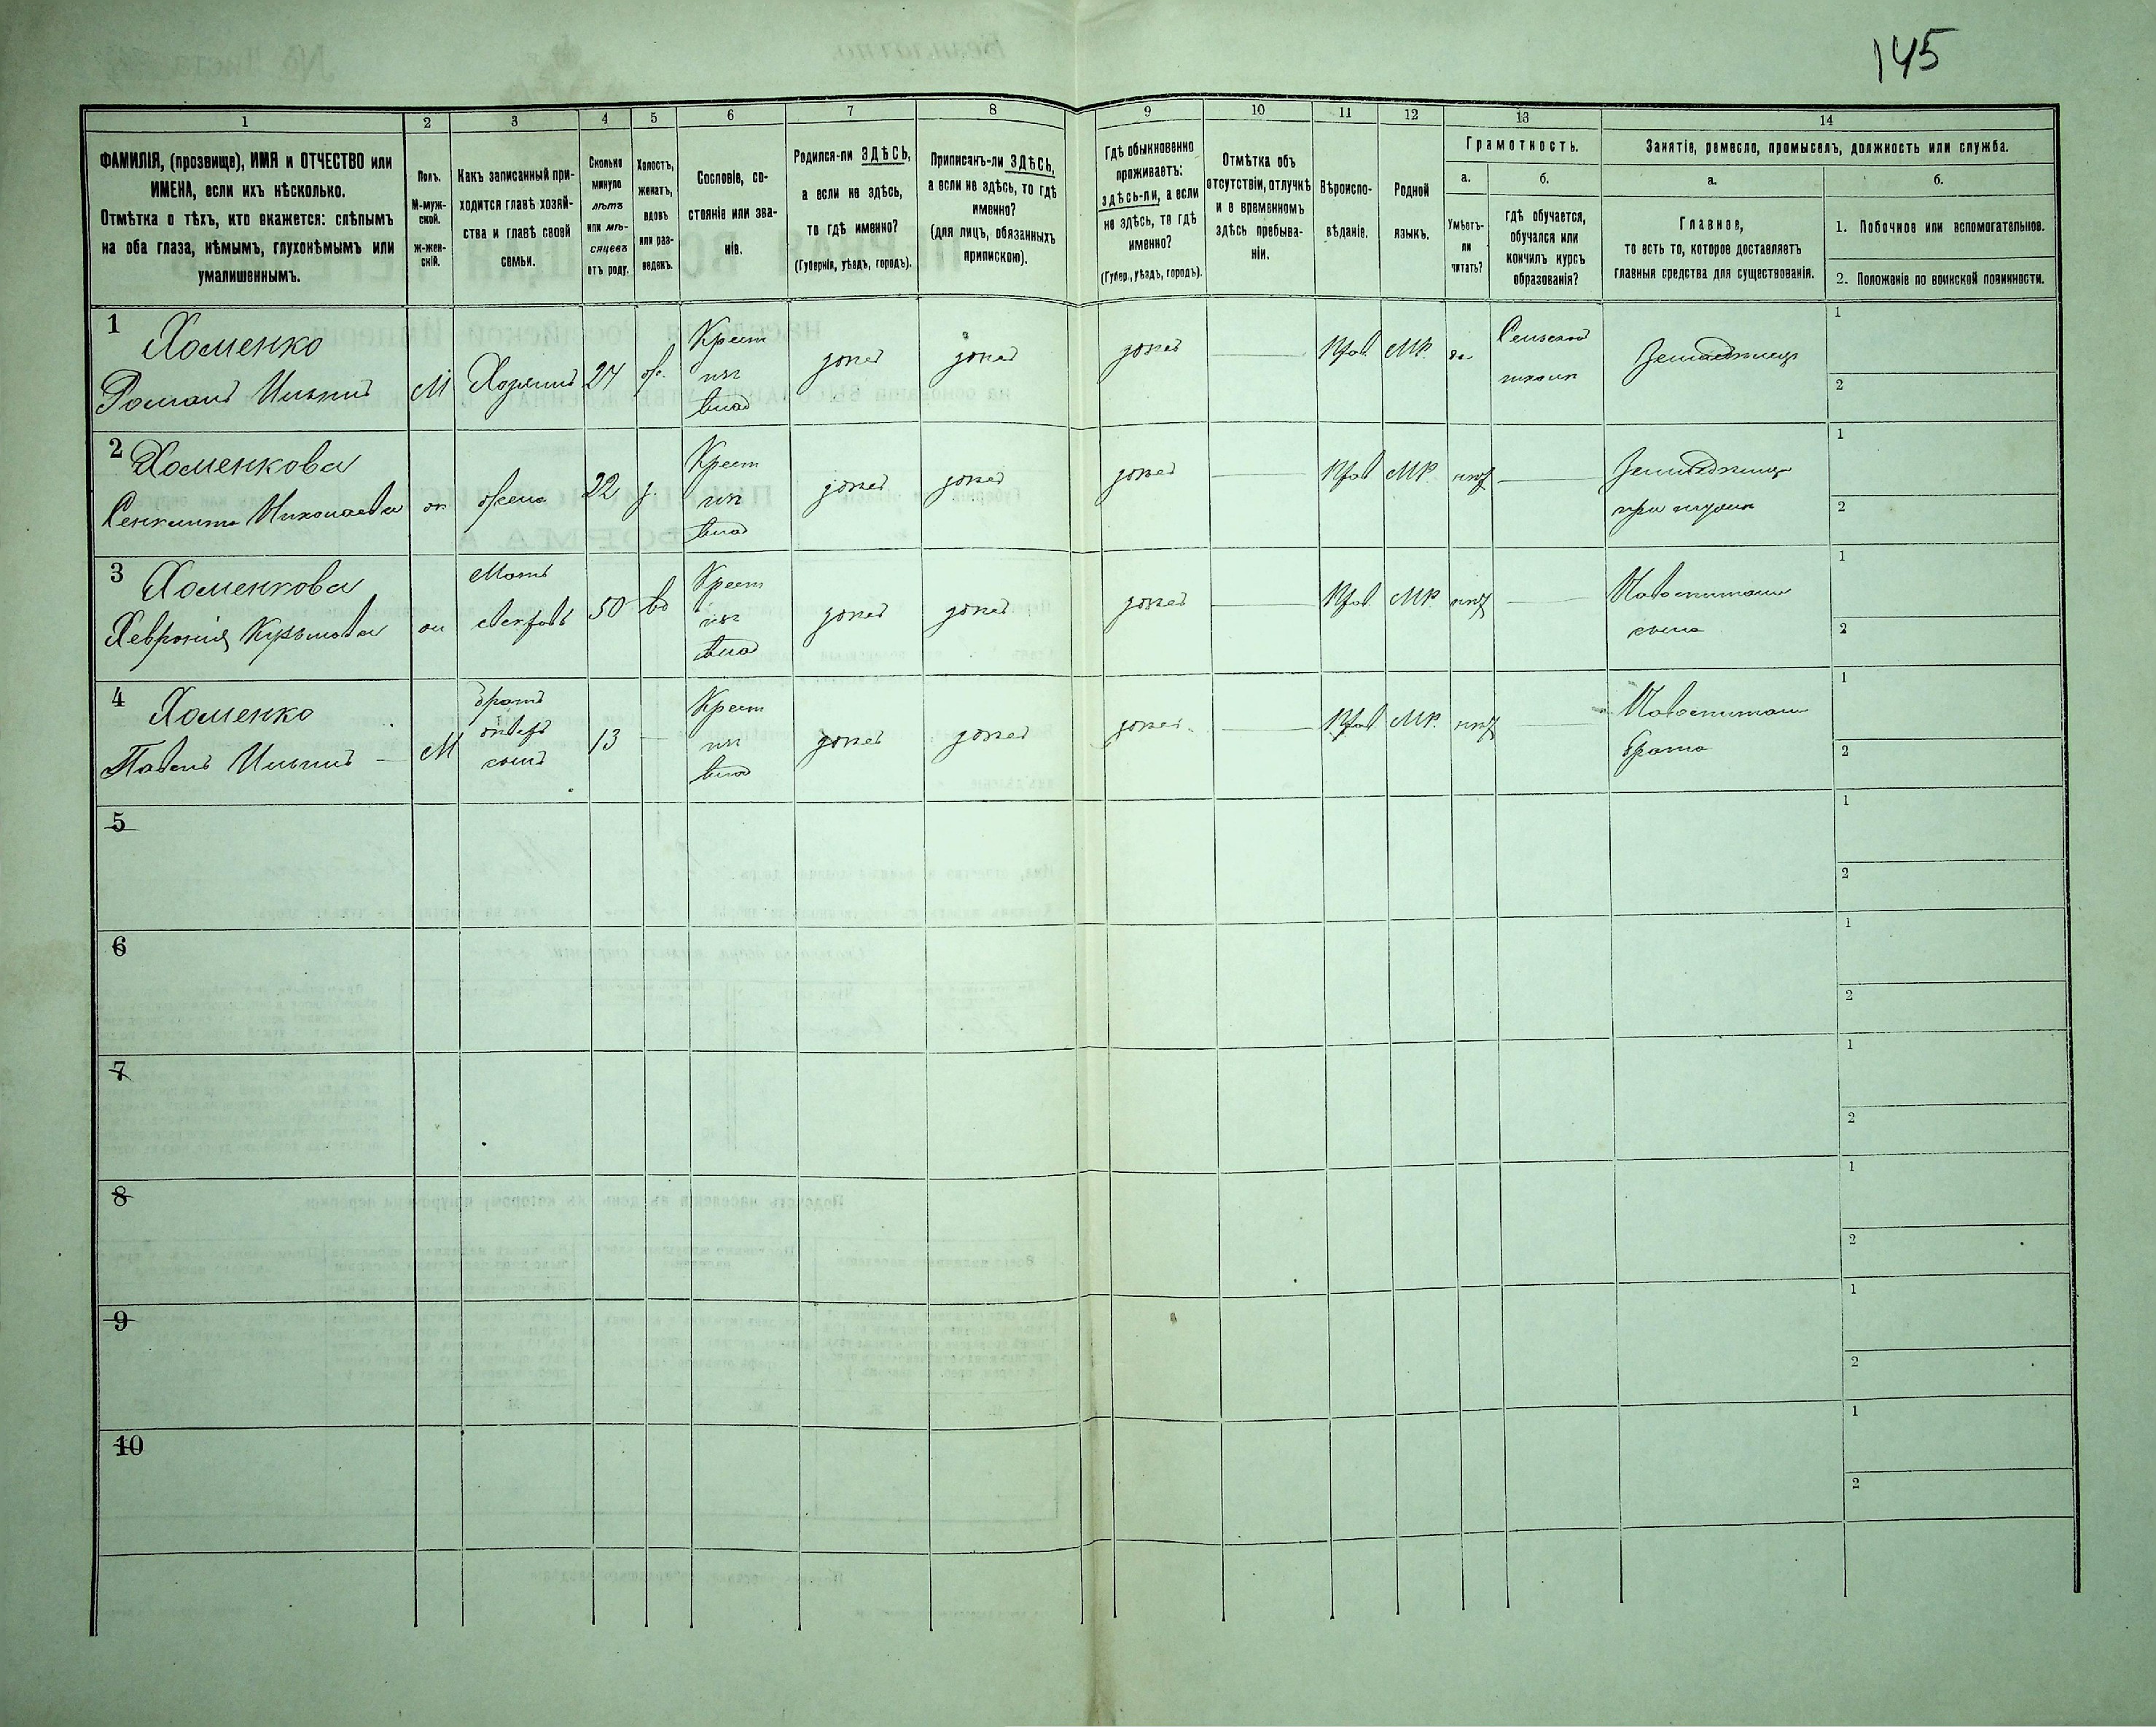 145
1 2 3 4 5 6 7 8 9 10 11 12 13 14
ФАМИЛІЯ, (прозвище), ИМЯ и ОТЧЕСТВО или
ИМЕНА, если ихъ нѣсколько.
Отмѣтка о тѣхъ, кто окажется: слѣпымъ
на оба глаза, нѣмымъ, глухонѣмымъ или
умалишеннымъ.
Полъ.
М-муж-
ской.
Ж-жен-
скій.
Какъ записанный при-
ходится главѣ хозяй-
ства и главѣ своей
семьи.
Сколько
минуло
лѣтъ
или мѣ-
сяцевъ
отъ роду.
Холостъ,
женатъ,
вдовъ
или раз-
веденъ.
Сословіе, со-
стояніе или зва-
ніе.
Родился-ли ЗДѢСЬ,
а если не здѣсь,
то гдѣ именно?
(Губернія, уѣздъ, городъ).
Приписанъ-ли ЗДѢСЬ,
а если не здѣсь, то гдѣ
именно?
(для лицъ, обязанныхъ
припискою).
Гдѣ обыкновенно
проживаетъ:
здѣсь-ли, а если
не здѣсь, то гдѣ
именно?
(Губер., уѣздъ, городъ).
Отмѣтка объ
отсутствіи, отлучкѣ
и о временномъ
здѣсь пребыва-
ніи.
Вѣроиспо-
вѣданіе.
Родной
языкъ.
Грамотность.
а.
Умѣетъ-
ли
читать?
б.
гдѣ обучается,
обучался или
кончилъ курсъ
образованія?
Занятіе, ремесло, промыселъ, должность или служба.
а.
Главное,
то есть то, которое доставляетъ
главныя средства для существованія.
б.
1. Побочное или вспомогательное.
2. Положеніе по воинской повинности.
1
Хоменко
Романъ Ильинъ
М
Хозяинъ
24
ж.
Крест
изъ
влад
здѣсь
здѣсь
здѣсь
Прав. МР.
да
Сельской
школѣ
Земледѣлецъ
1
2
2
Хоменкова
Николаева
ж
жена
22
з.
Крест
изъ
влад
здѣсь
здѣсь
здѣсь
Прав МР.
нѣтъ
при мужѣ
1
2
3
Хоменкова
Хевронія
ж
Мать
свекровь
50
вд
Крест
изъ
влад
здѣсь
здѣсь
здѣсь
Прав. МР.
нѣтъ
сына
1
2
4
Хоменко
Павелъ Ильинъ
М
Братъ
сынъ
13
Крест
изъ
влад
здѣсь
здѣсь
здѣсь
Прав МР.
нѣтъ
брата
1
2
5
1
2
6
1
2
7
1
2
8
1
2
9
1
2
10
1
2